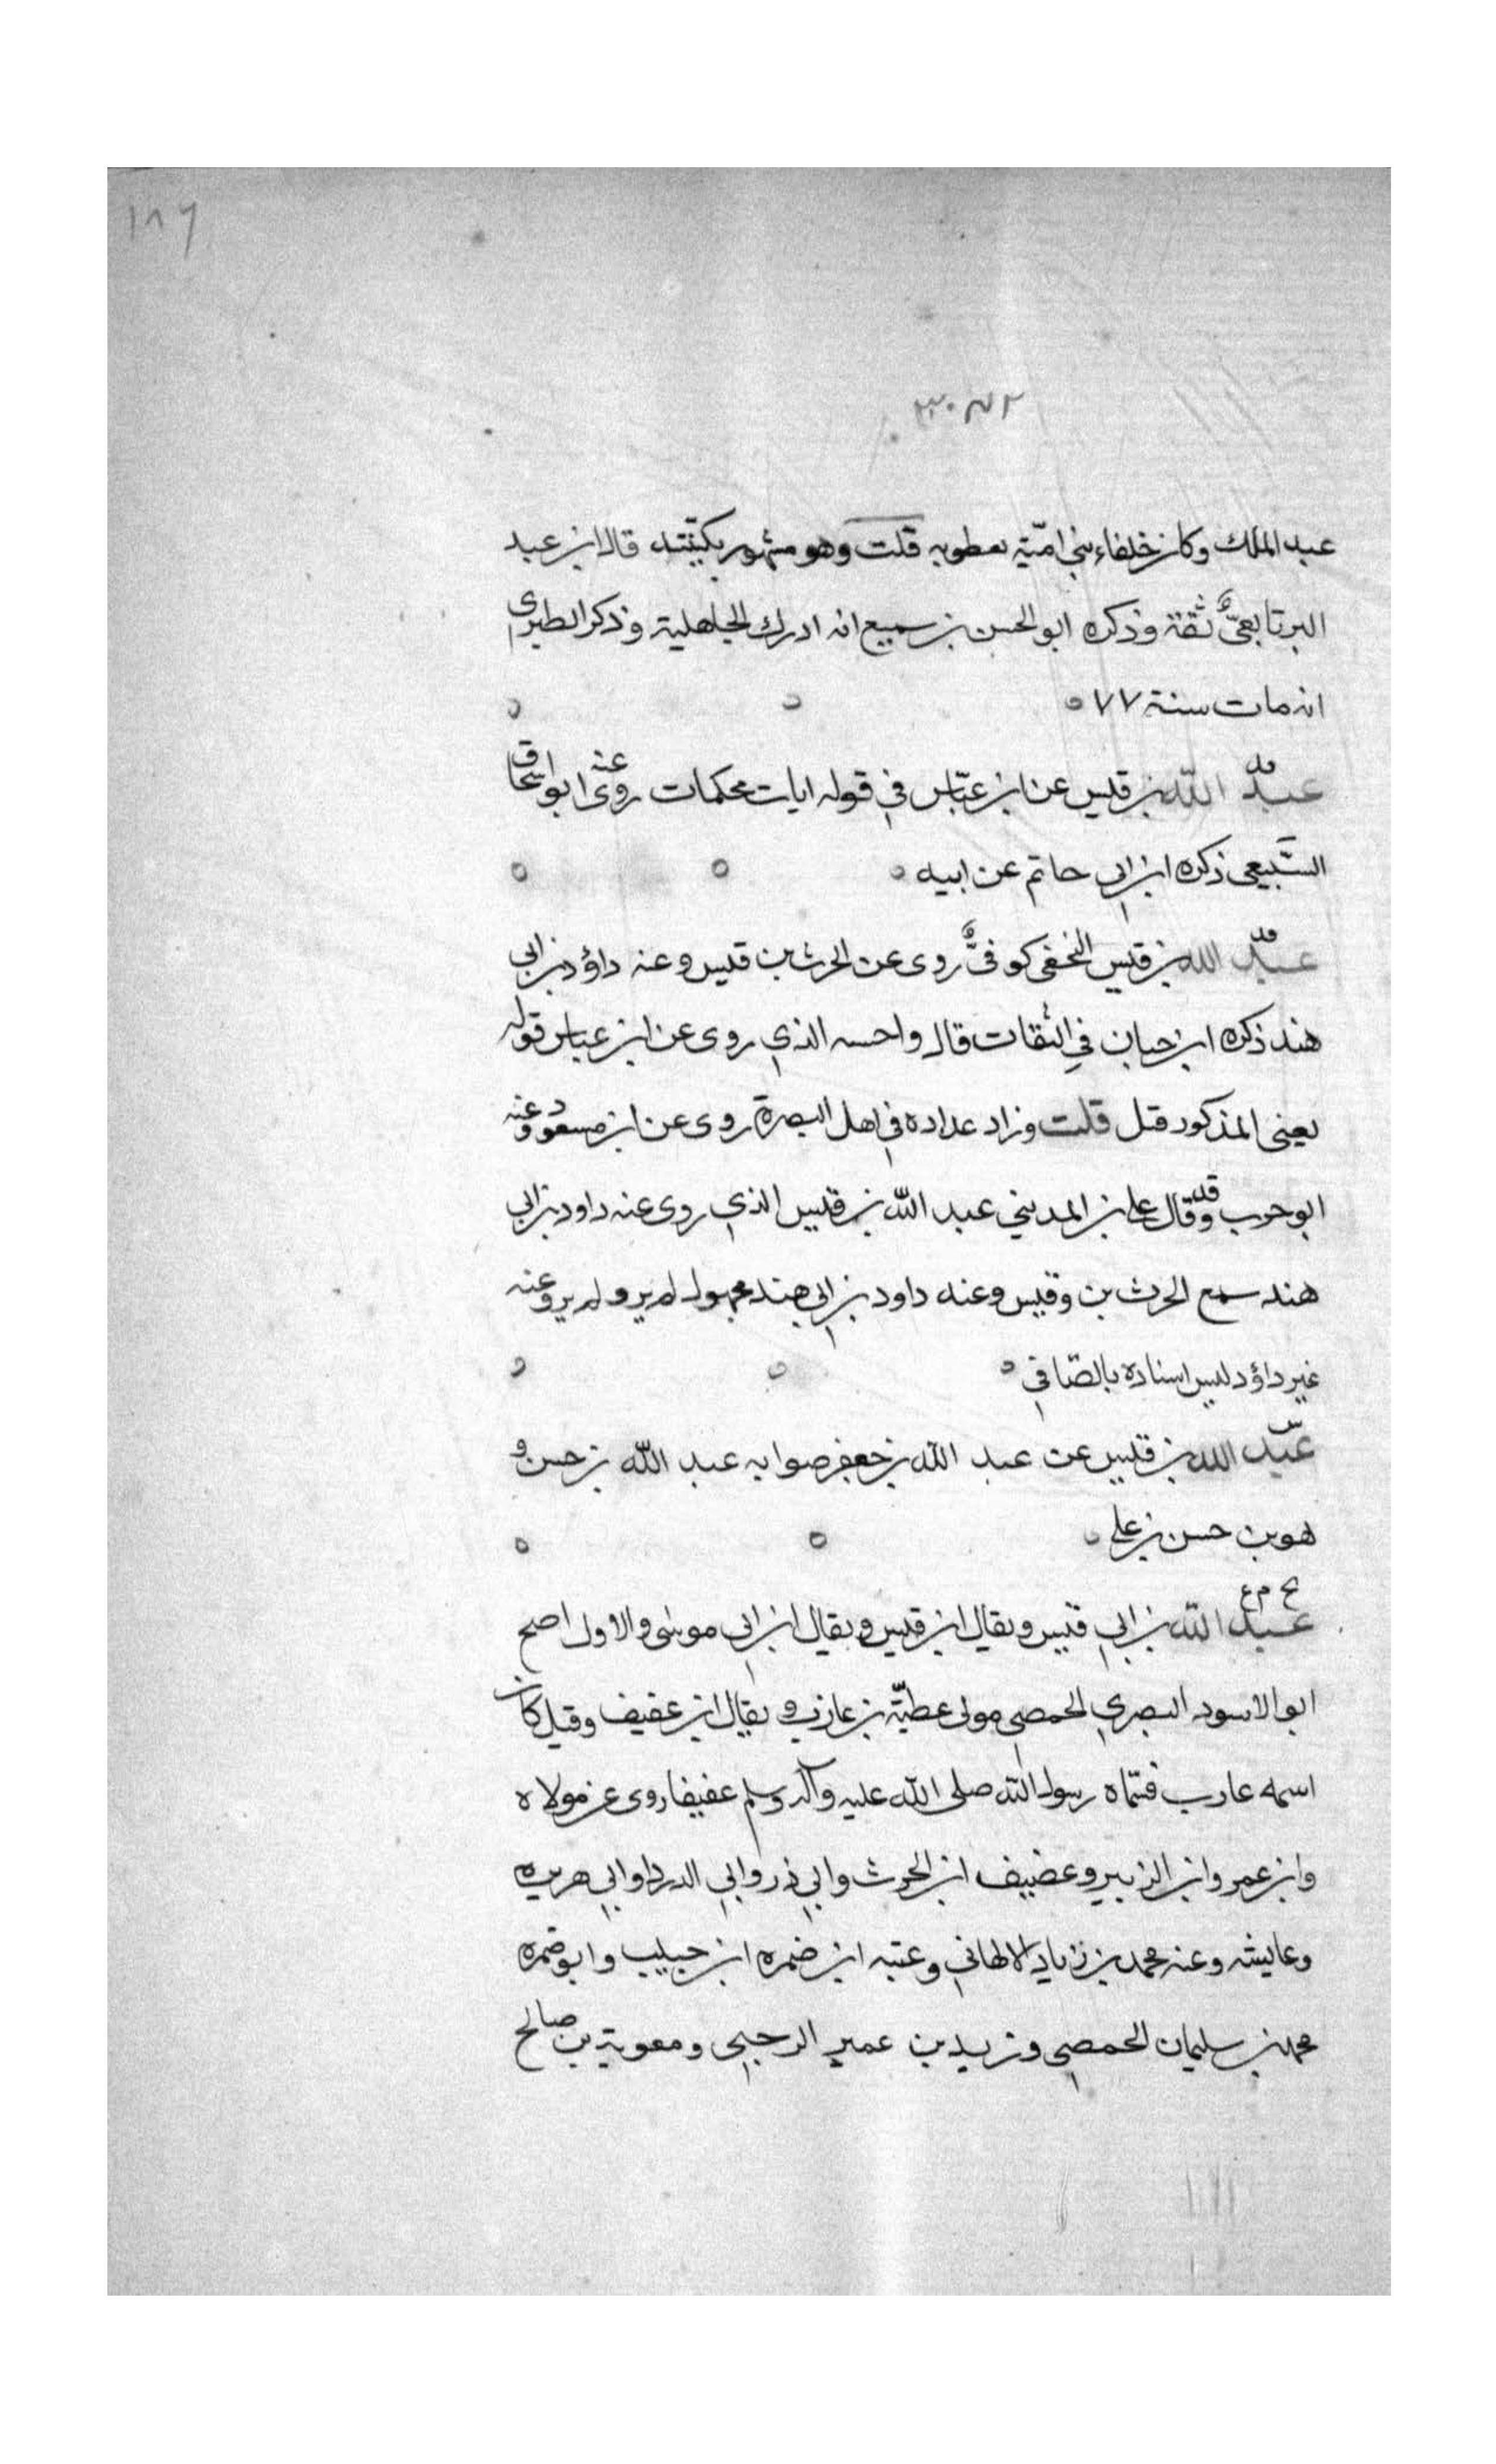 ١٨٦
عبد الملك وكان خلفاء بنى امّية يعطونه قلت وهو مشهور بكنيّته قال ابن عبد
البر تابعىٌّ ثقة وذكره ابو الحسن بن سميع انه ادرك الجاهلية وذكر الطبرى
انه مات سنة ٧٧
عبد الله بن قيس عن ابن عبّاس في قوله ايات محكمات روى عنه ابو اسحاق
السَّبيعى ذكره ابن ابي حاتم عن ابيه
عبد الله بن قيس النخعى كوفىٌّ روى عن الحرث بن قيس وعنه داؤد بن ابى
هند ذكره ابن حبان في الثقات قال واحسبه الذي روى عن ابن عباس قوله
يعنى المذكور قبل قلت وزاد عداده في اهل البصرة روى عن ابن مسعود وعنه
ابو حرب وقال على بن المديني عبد الله بن قيس الذي روى عنه داود بن ابى
هند سمع الحرث بن وقيس وعنه داود بن ابي هند مجهول لم يرو لم يرو عنه
غير داؤد ليس اسناده بالصّافي
عبد الله بن قيس عن عبد الله بن جعفر صوابه عبد الله بن حسن و
هو بن حسن بن على
بخ م ع
عبد الله بن ابي قيس ويقال ابن قيس ويقال ابن ابى موسى والاول اصح
ابو الاسود النصري الحمصي مولى عطيّة بن عازب ويقال ابن عفيف وقيل كان
اسمه عازب فسّماه رسول الله صلى الله عليه وآله وسلم عفيفا روى عن مولاه
وابن عمر وابن الزبير وغضيف ابن الحرث وابي ذر وابي الدرداء وابى هريره
وعايشه وعنه محمد بن زياد الالهاني وعتبه ابن ضمره ابن حبيب وابو ضمره
محمد بن سليمان الحمصي ويزيد بن عمير الرحبى ومعوية بن صالح